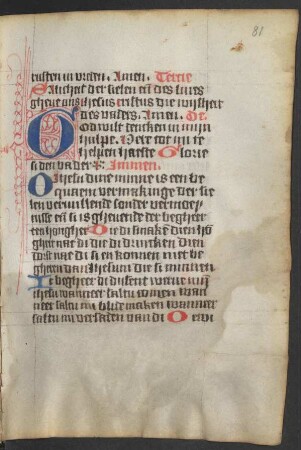 81
rusten in vreden. Amen. Tercie
Salicheit der sielen en̄ des lives
gheve uns ihesus cristus die wijsheit
des vaders. Amen. De
God wilt dencken in mijn
hulpe. Here tot mi te
helpen haeste Glorie
si den vader Ymnen.
O ihesu dine minne is een be
quaem vermakinge der sie
len vervullende sonder verdrie
nisse en̄ si is ghevende der begheer
ten hongher Die di smake dien h
ghet nae di die di drincken dien
dorst nae di si en connen niet be
gheren dan ihesum die si minnen
Ic begheer di dusent werven
ihesu wanneer saltu comen wan
neer saltu mi blide maken wanneer
saltu mi versaden van di